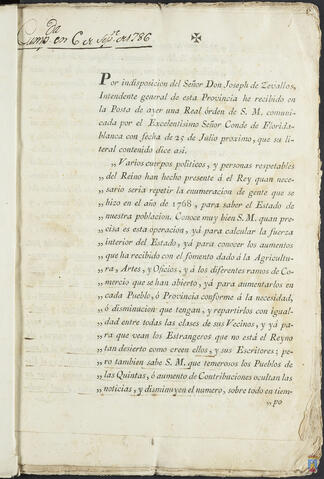 Cump.da en 6 de Sept.e de 1786
✠
Por indisposicion del Señor Don Joseph de Zevallos,
Intendente general de esta Provincia he recibido en
la Posta de ayer una Real órden de S. M. comuni-
cada por el Excelentisimo Señor Conde de Florida-
blanca con fecha de 25 de Julio proximo, que su li-
teral contenido dice asi.
„ Varios cuerpos politicos, y personas respetables
„ del Reino han hecho presente á el Rey quan nece-
„ sario seria repetir la enumeracion de gente que se
„ hizo en el año de 1768, para saber el Estado de
„ nuestra poblacion. Conoce muy bien S. M. quan pre-
„ cisa es esta operacion, yá para calcular la fuerza
„ interior del Estado, yá para conocer los aumentos
„ que ha recibido con el fomento dado á la Agricultu-
„ ra, Artes, y Oficios, y á los diferentes ramos de Co-
„ mercio que se han abierto, yá para aumentarlos en
„ cada Pueblo, ó Provincia conforme á la necesidad,
„ ó disminucion que tengan, y repartirlos con igual-
„ dad entre todas las clases de sus Vecinos, y yá pa-
„ ra que vean los Estrangeros que no está el Reyno
„ tan desierto como creen ellos, y sus Escritores; pe-
„ ro tambien sabe S. M. que temerosos los Pueblos de
„ las Quintas, ó aumento de Contribuciones ocultan las
„ noticias, y disminuyen el numero, sobre todo en tiem-
„ po